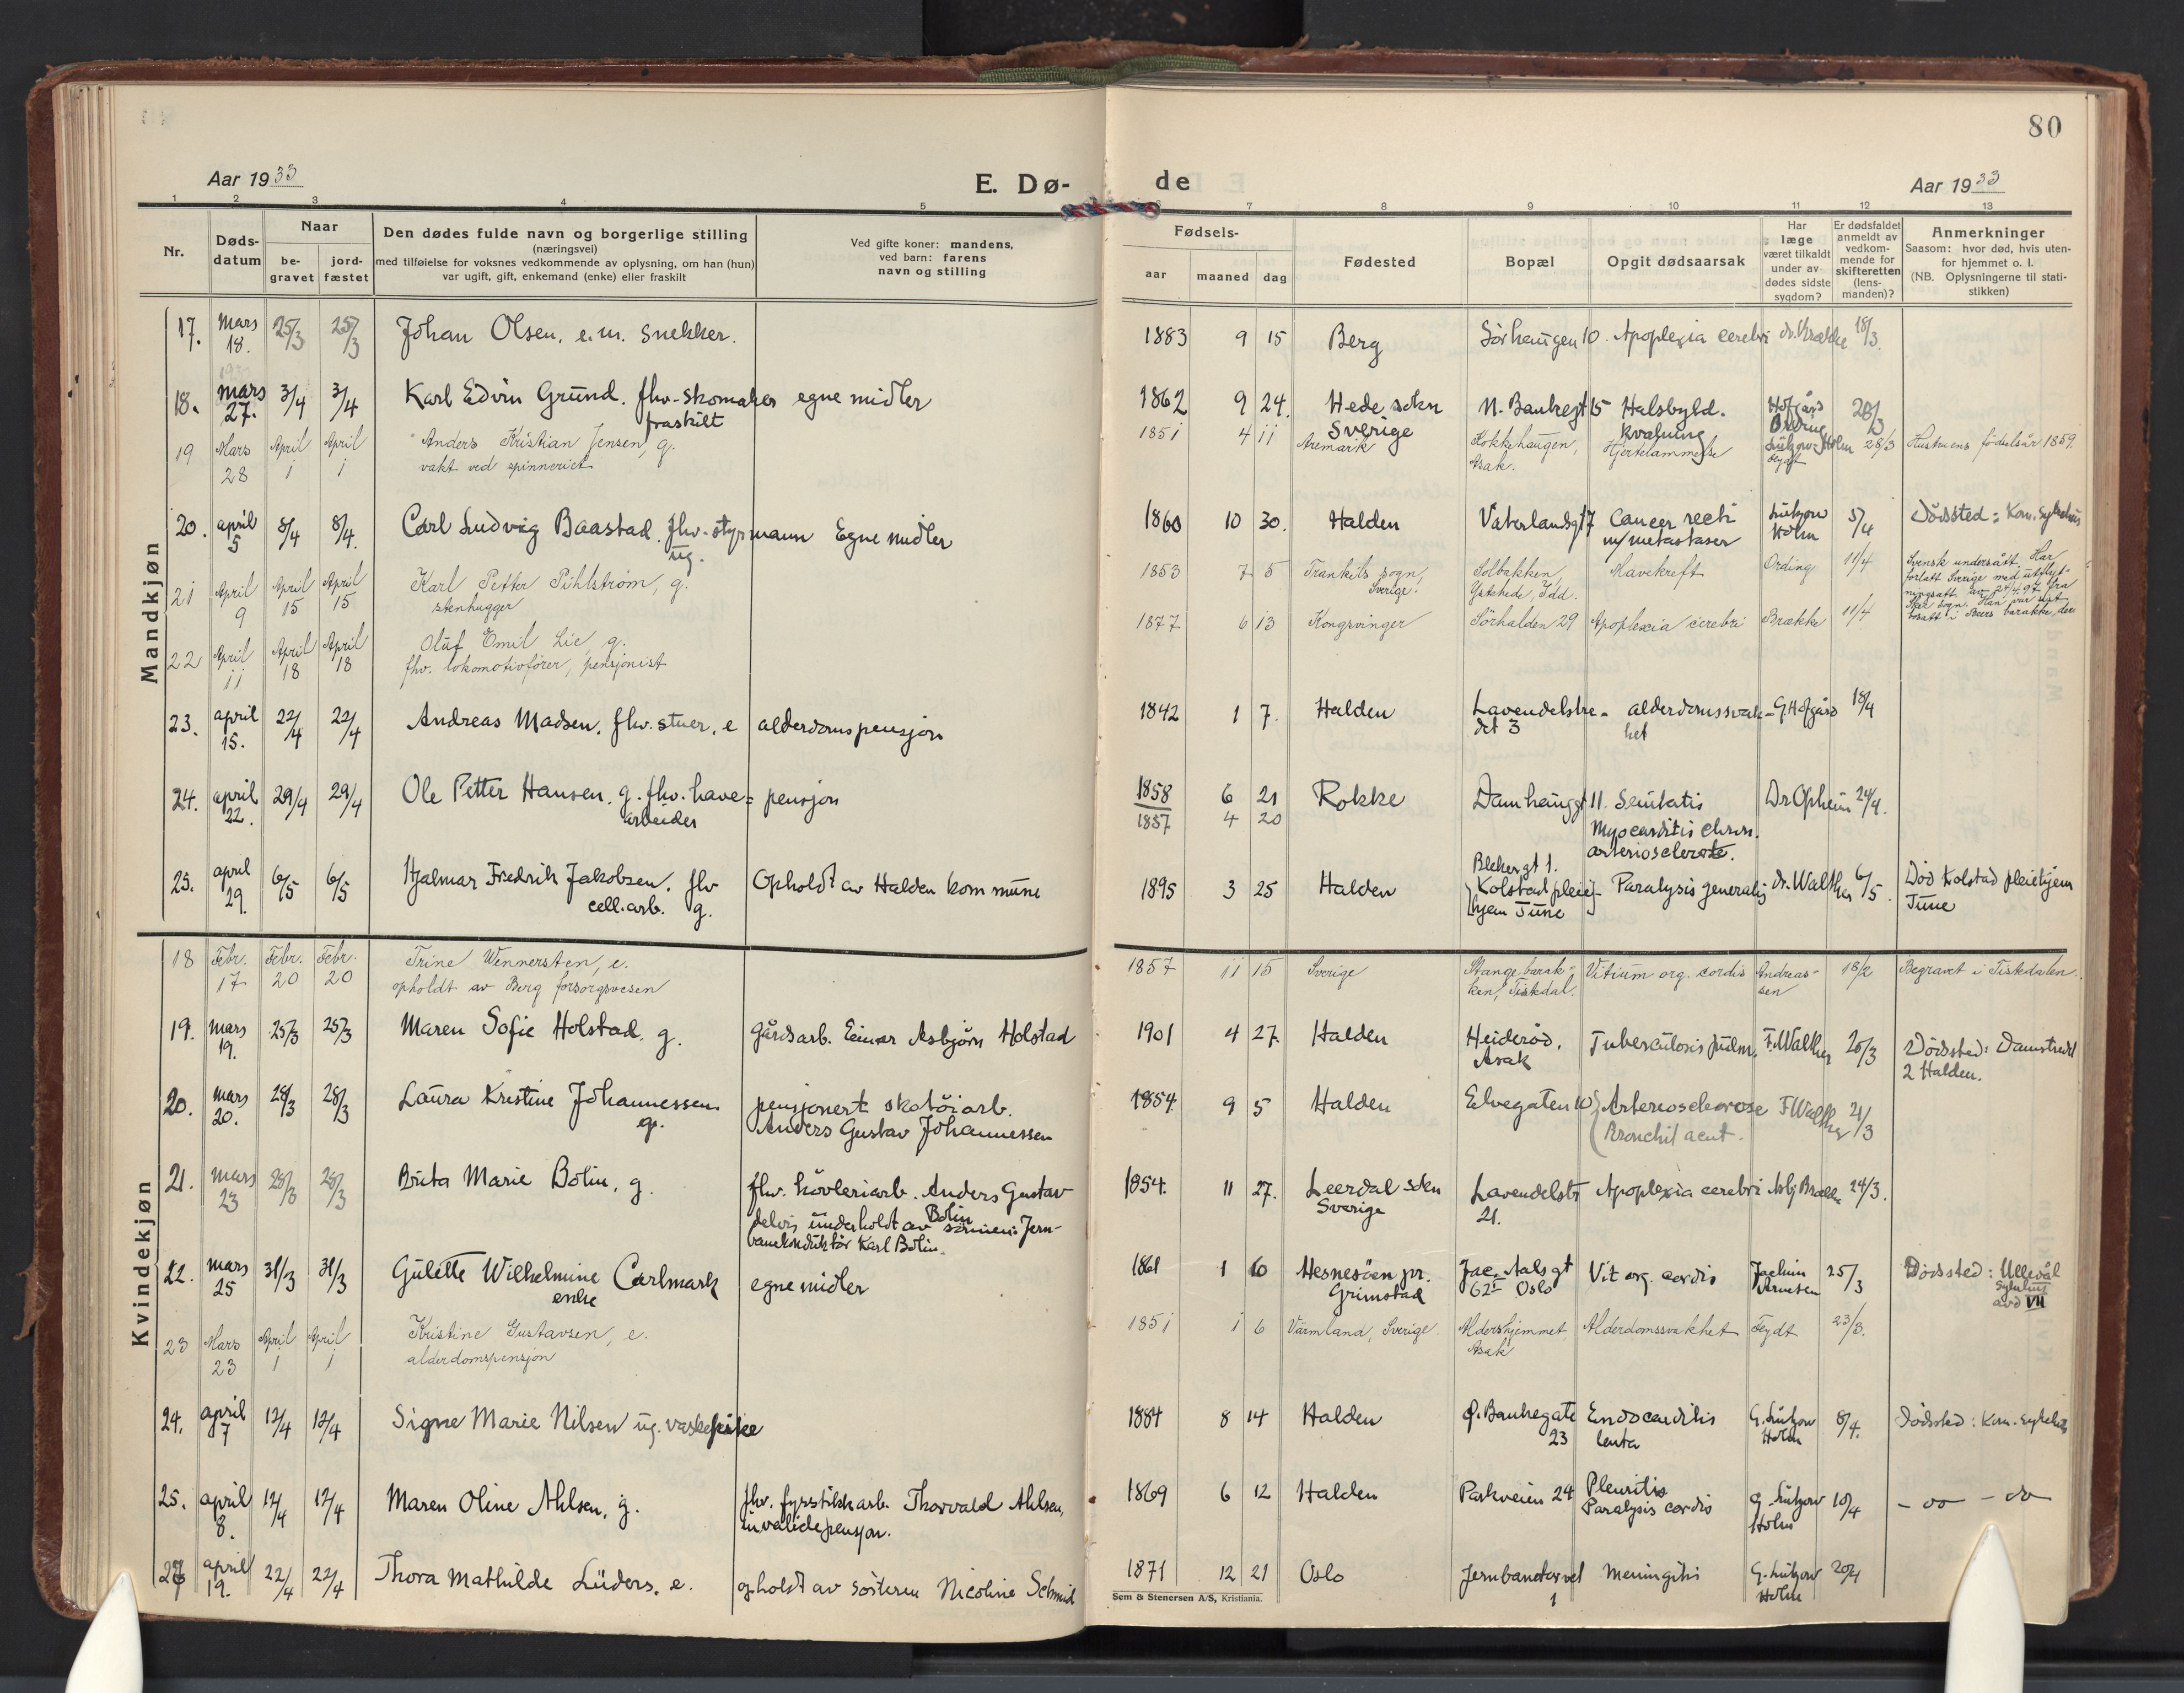 80
Aar 1933
E. Dø-
de
Aar 1933
1 2 3 4 5 6 7 8 9 10 11 12 13
Nr.
Døds-
datum
Naar
be-
gravet
jord-
fæstet
Den dødes fulde navn og borgerlige stilling
(næringsvei)
med tilføielse for voksnes vedkommende av oplysning, om han (hun)
var ugift, gift, enkemand (enke) eller fraskilt
Ved gifte koner: mandens,
ved barn: farens
navn og stilling
Fødsels-
aar maaned dag
Fødested
Bopæl
Opgit dødsaarsak
Har
læge
været tilkaldt
under av-
dødes sidste
sygdom?
Er dødsfaldet
anmeldt av
vedkom-
mende for
skifteretten
(lens-
manden)?
Anmerkninger
Saasom: hvor død, hvis uten-
for hjemmet o. l.
(NB. Oplysningerne til stati-
stikken)
Mandkjøn
17. Mars 18. 25/3 25/3 Johan Olsen, e.m. snekker. 1883 9 15 Berg Sörhaugen 10. Apoplexia cerebri dr. Brække 18/3.
18. Mars 27. 3/4 3/4 Karl Edvin Grund. fhv. skomaker egne midler 1862 9 24. Hede sokn N. Bankegt 15 Halsbyld. Hofgård 28/3
fraskilt Sverige Kvælning Ording
19 Mars 28 April 1 April 1 Anders Kristian Jensen, g. 1851 4 11 Aremark Kokkehaugen, Hjertelammelse Lützow-Holm 28/3 Hustruens födselsår 1859.
vakt ved spinneriet Asak. Feydt
20. april 5 8/4 8/4. Carl Ludvig Baastad. fhv. styrmann Egne midler 1860 10 30. Halden Vaterlandsgt 7 Cancer recti Lützow 5/4 Dödssted: Kom. sykehus
ug. m/metastaser Holm
21 April 9 April 15 April 15 Karl Petter Pihlström, g. 1853 7 5 Trankils sogn, Solbakken, Mavekreft Ording 11/4 Svensk undersått. Har
stenhugger Sverige. Ystehede, Idd. forlatt Sverige med utflyt-
ningsatt. av 24/4 97 fra
sogn. Han var sist
bosatt i Beers barakke, der
22 April 11 April 18 April 18 Oluf Emil Lie, g. 1877 6 13 Kongsvinger Sörhalden 29 Apoplexia cerebri Brække 11/4
fhv. lokomotivfører, pensjonist
23. april 15. 22/4 22/4 Andreas Madsen, fhv. stuer, e alderdomspensjon 1842 1 7. Halden Lavendelstre- alderdomssvak- G. Hofgård 18/4
det 3 het
24. april 22. 29/4 29/4 Ole Petter Hansen, g. fhv. have= pensjon 1858 6 21 Rokke Damhauggt 11. Senilitatis Dr Opheim 24/4.
arbeider 1857 4 20 Myocarditis chron.
arteriosclerose.
25. april 29. 6/5 6/5 Hjalmar Fredrik Jakobsen. fhv Opholdt av Halden kommune 1895 3 25 Halden Blekergt 1. Paralysis generalis dr. Walther 6/5. Död Kolstad pleiehjem
cell.arb. g. Kolstad pleie- Tune
hjem Tune
Kvindekjøn
18 Febr. 17 Febr. 20 Febr. 20 Trine Wennersten, e. 1857 11 15 Sverige Stange barak- Vitium org. cordis Andreas- 18/2 Begravet i Tistedalen.
opholdt av Berg forsorgsvesen ken, Tistedal. sen
19. Mars 19. 25/3 25/3 Maren Sofie Holstad, g. gårdsarb. Einar Asbjörn Holstad 1901 4 27. Halden Heideröd, Tuberculosis pulm. F. Walther 20/3 Dödssted: Damstredet
Asak 2 Halden.
20. Mars 20. 28/3 28/3 Laura Kristine Johannessen. pensjonert skotöiarb. 1854 9 5 Halden Elvegaten 10 Arteriosclerose F Walther 21/3
g. Anders Gustav Johannessen Bronchit acut.
21. Mars 23 28/3 28/3 Brita Marie Bolin, g. fhv. hövleriarb. Anders Gustav 1854. 11 27. Leerdal sokn Lavendelstr Apoplexia cerebri Asbj Brække 24/3.
Bolin Sverige 21.
delvis underholdt av sönnen: Jern-
banekonduktör Karl Bolin.
22. Mars 25 31/3 31/3 Gulette Wilhelmine Carlmark egne midler 1861 1 10 Hesnesöen pr. Jac. Aals gt Vit org. cordis Jachim 25/3 Dödssted: Ullevål
enke Grimstad 62 Oslo sykehus
avd VII
23 Mars 23 April 1 April 1 Kristine Gustavsen, e. 1851 1 6 Värmland, Sverige. Aldershjemmet, Alderdomssvakhet Feydt 23/3.
alderdomspensjon Asak
24. april 7 12/4 12/4 Signe Marie Nilsen ug. vaskepike 1884 8 14 Halden Ø. Bankegate Endocarditis G. Lützow 8/4. Dödssted: Kom. sykehus
23 lenta Holm
25. april 8. 12/4 12/4 Maren Oline Ahlsen, g. fhv. fyrstikkarb. Thorvald Ahlsen, 1869 6 12 Halden Parkveien 24 Pleuritis G. Lützow 10/4 - do - do
invalidepensjon. Paralysis cordis Holm
27 april 19. 22/4 22/4 Thora Mathilde Lüders, e. opholdt av sösteren Nicoline Schmid 1871 12 21 Oslo Jernbanetorvet Meningitis G. Lützow 20/4
1 Holm
Sem & Stenersen A/S, Kristiania.